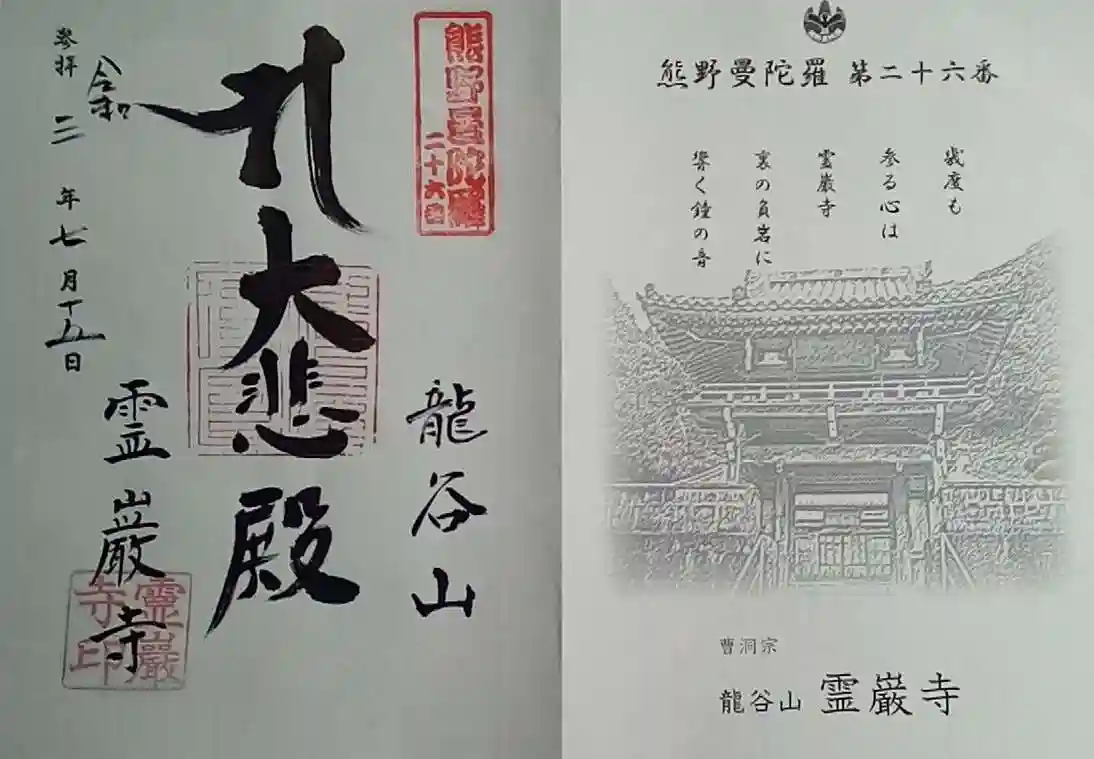 熊野曼陀羅
二十六番
龍谷山
大悲殿
霊巌寺
靈巖寺印
令和
参拝 三年七月十五日
熊野曼陀羅 第二十六番
幾度も
参る心は
霊巌寺
裏の負岩に
響く鐘の音
曹洞宗
龍谷山 霊巌寺